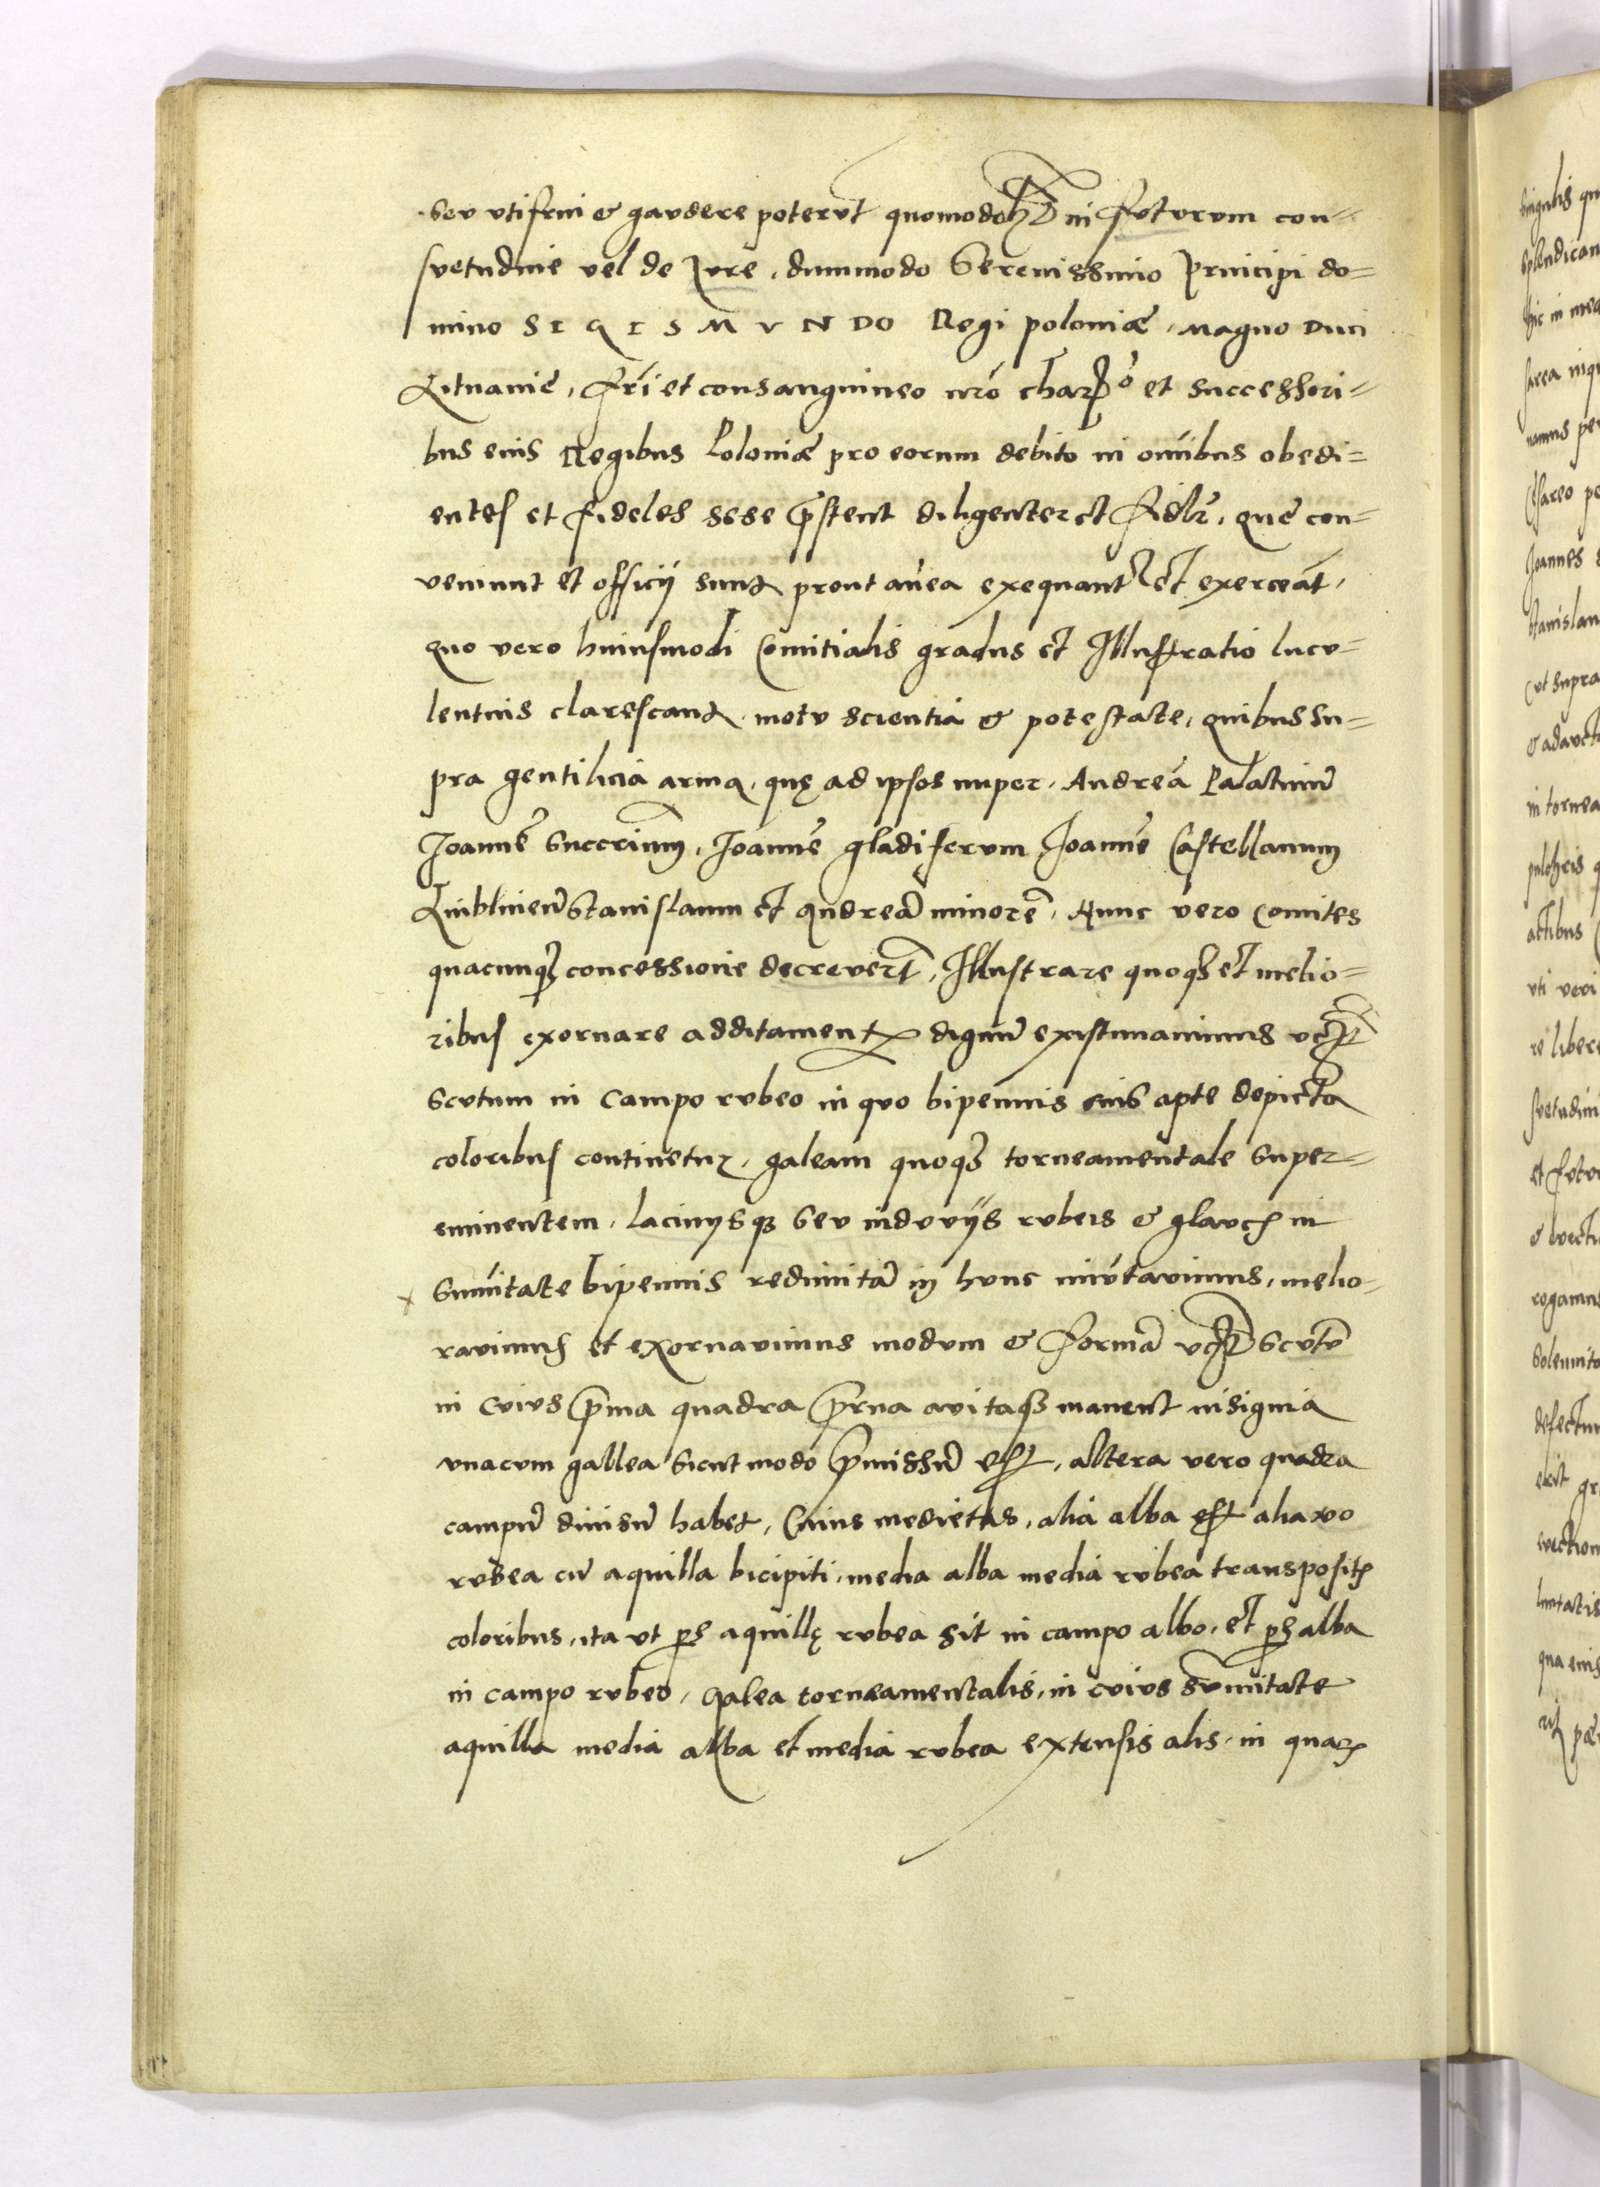 seu utifrui & gaudere poterūt quomodol3 in futurum con=
suetudine vel de Jure, dummodo Serenissimo Principi do=
mino SIGISMVNDO Regi poloniæ, Magno Duci
Lituanie, fr̄i et consanguineo nr̄o charmo et successori=
bus eius Regibus Poloniæ pro eorum debito in oīnibus obedi=
entes et fideles sese p̄stent diligenter et fidelr̄, que con=
veniunt et officij sunt prout antea exequant et exerceāt,
quo vero huiusmodi Comitialis gradus et Illustratio lucu=
lentius clarescant, motu scientia & potestate, quibus su=
pra gentilicia arma, quę ad ipsos nuper, Andreā Palatinū
Joannē Succerinum, Joannē gladiferum Joannē Castellanum
Lublineñ Stanislaum et Andreā minorē, Nunc vero Comites
quacunq3 concessione decreverūt, Illustrare quoq3 et melio=
ribus exornare additamentis dignū existimavimus vc3
Scutum in campo rubeo in quo bipennis eius apte depicta
coloribus continetur, galeam quoq3 torneamentale super=
eminentem, lacinijsq3 seu induvijs rubeis & glaucis in
sum̄itate bipennis redimitā in hunc mutavimus, melio=
ravimus et exornavimus modum & formā vc3 scutū
in cuius p̄ma quadra p̄rna avitaq3 manent insignia
unacum gallea sicut modo p̄missū est, altera vero quadra
campū divisū habet, Cuius medietas, alia alba est alia vo
rubea cū aquilla bicipiti, media alba media rubea transpositis
coloribus, ita ut pars aquillę rubea sit in campo albo, et pars alba
in campo rubeo, Galea torneamentalis, in cuius sum̄itate
aquilla media alba et media rubea extensis alis, in quar